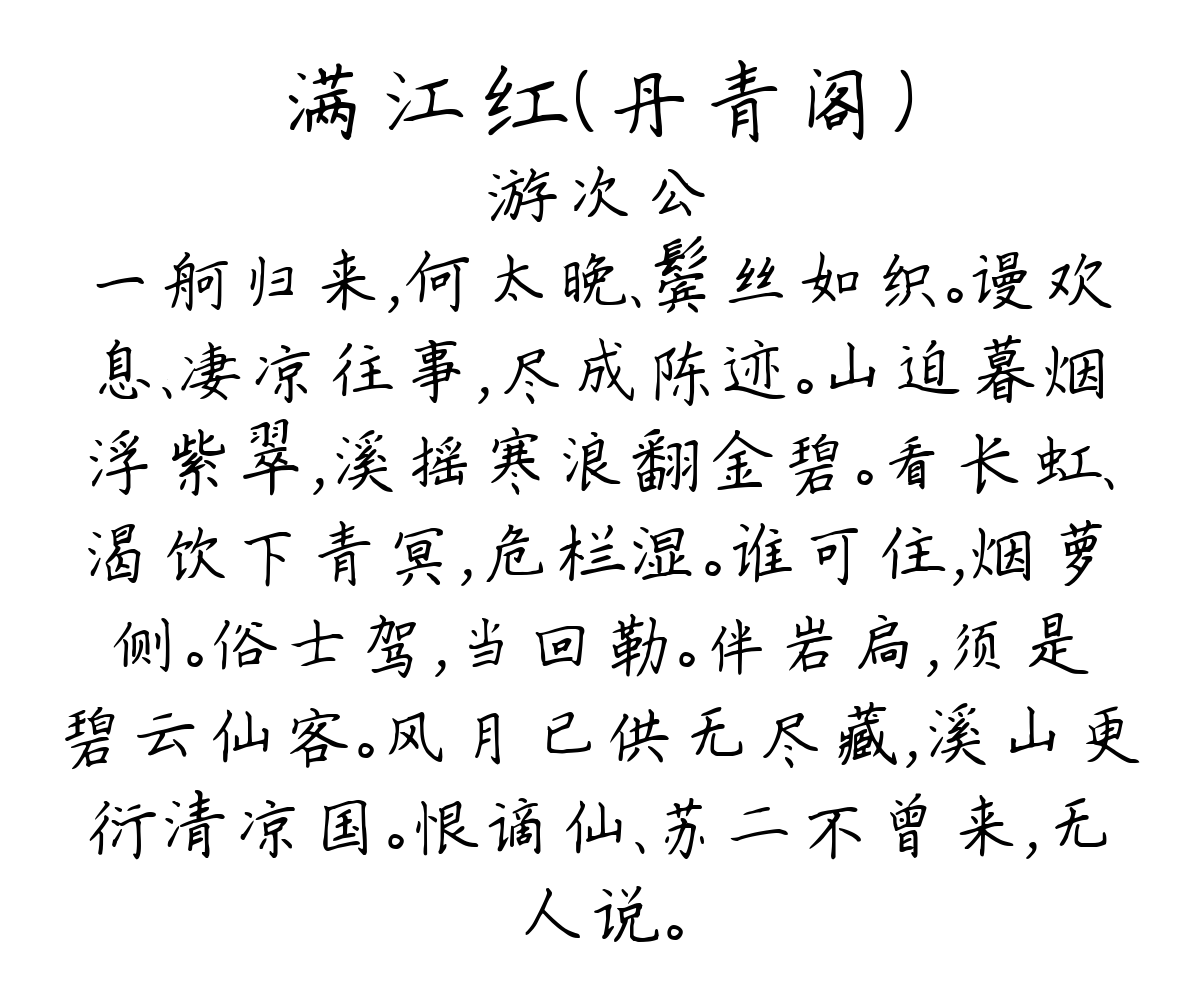 满江红(丹青阁)
游次公
一舸归来,何太晚、鬓丝如织。谩欢
息、凄凉往事,尽成陈迹。山迫暮烟
浮紫翠,溪摇寒浪翻金碧。看长虹、
渴饮下青冥,危栏湿。谁可住,烟萝
侧。俗士驾,当回勒。伴岩扃,须是
碧云仙客。风月已供无尽藏,溪山更
衍清凉国。恨谪仙、苏二不曾来,无
人说。